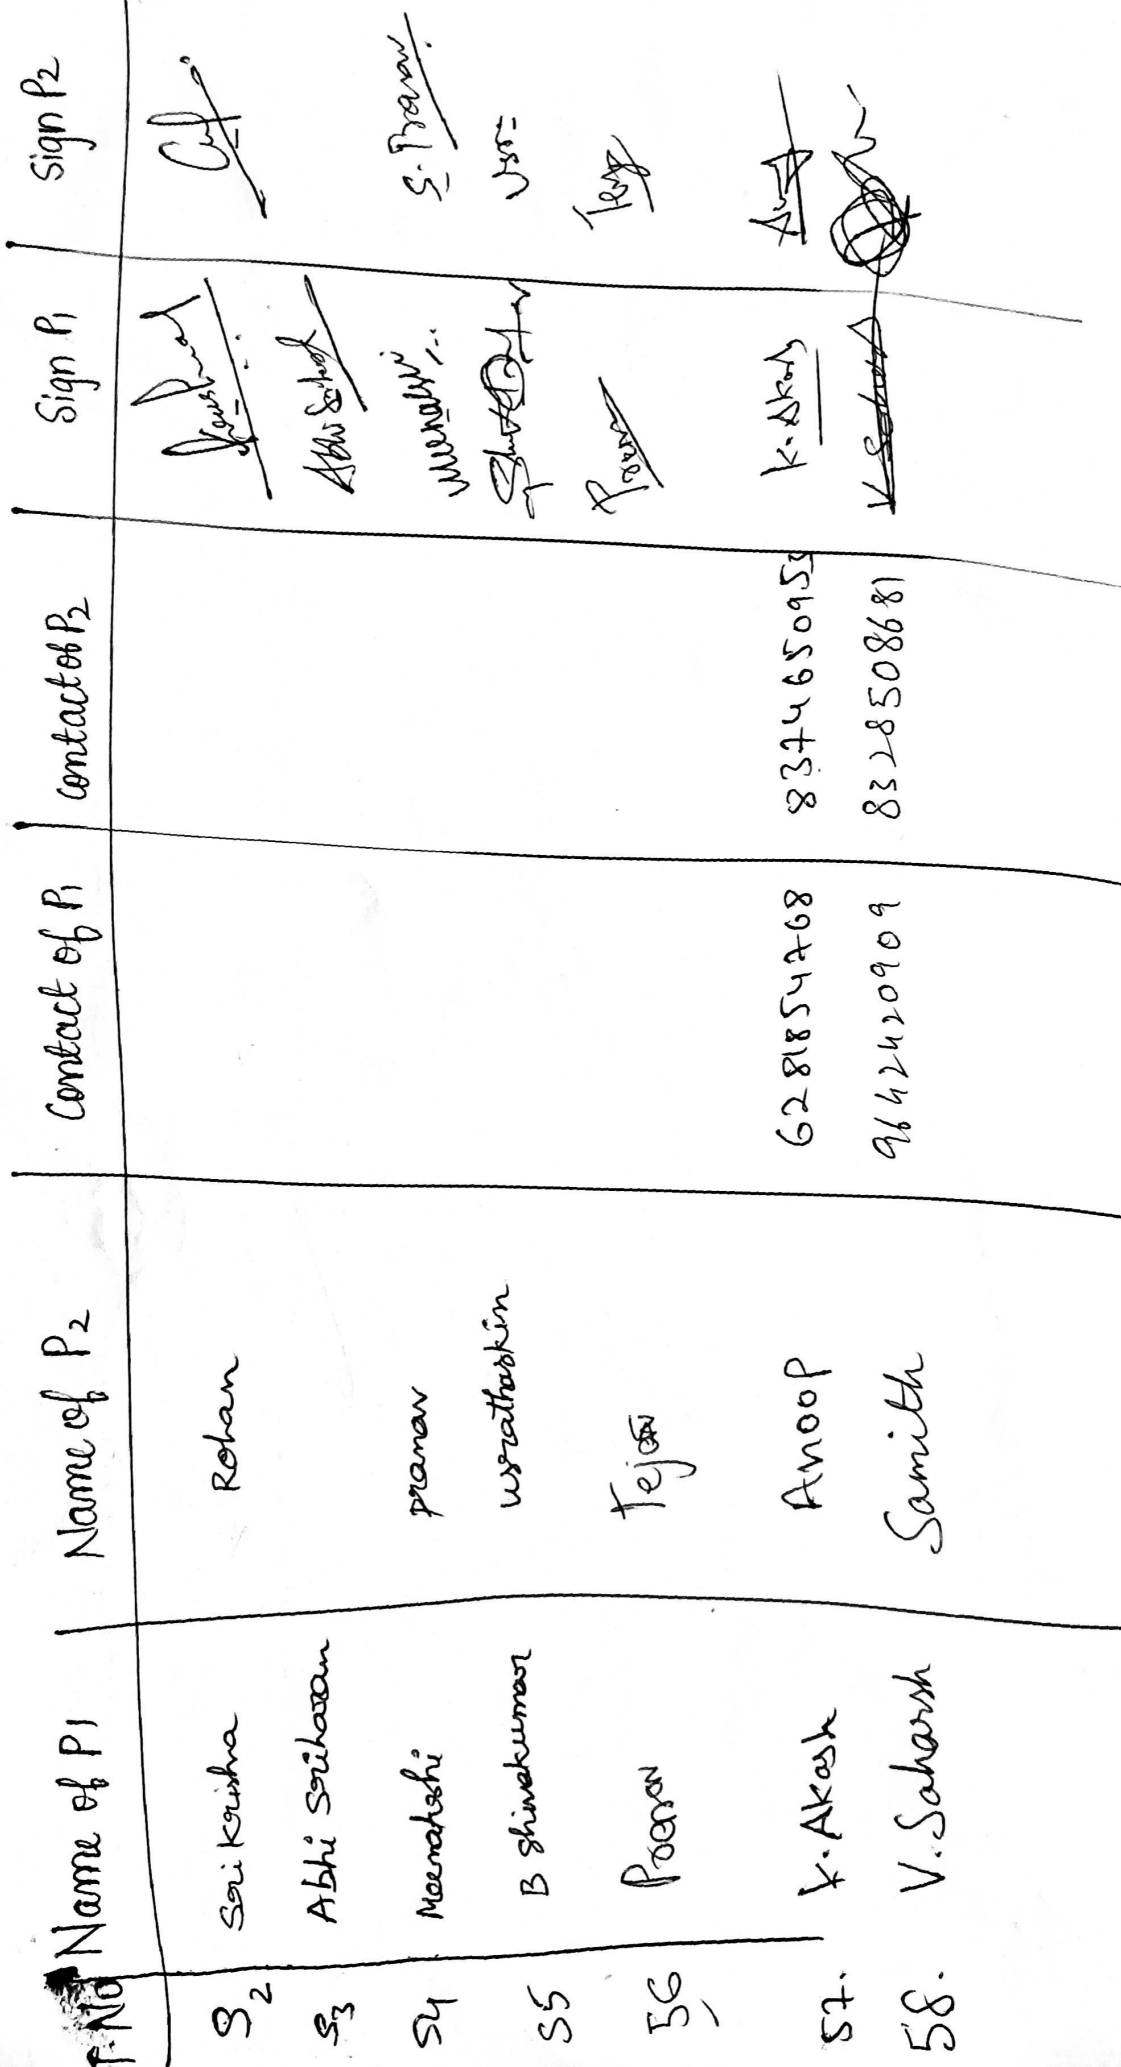 T.No Name of P1 Name of P2 Contact of P1 Contact of P2 Sign P1 Sign P2
52 Sri Krishna Rohan
53 Abhi Sriharan Abhi
54 Meenakshi pranav Meenakshi S. Pranav
55 B Shivakumar
56 Praveen Tej Tej
57. K. Akash Anoop 6281854768 8374650953 K. Akash
58. V. Saharsh Samith 9642420909 8328508681